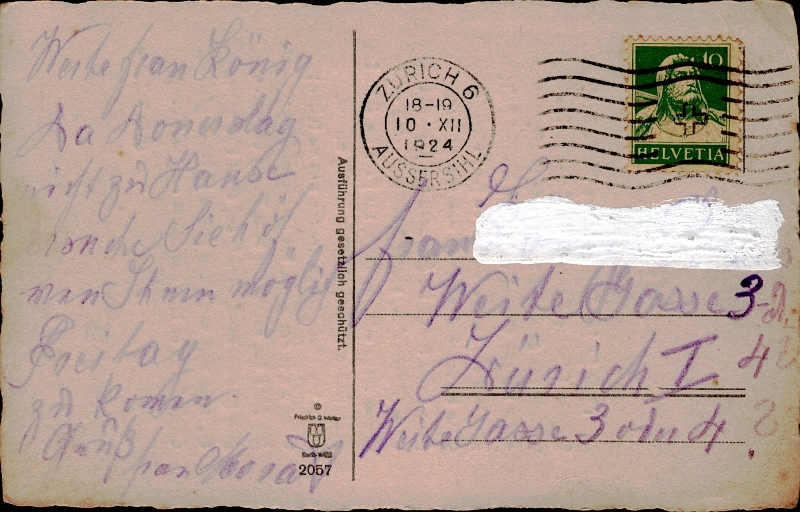 Werte frau König
Da Donerstag
nicht zu Hause
Sie höf.
wen Ihnen möglich
Freitag
zu komen.
Gruß
Ausführung gesetzlich geschützt.
2057
ZÜRICH 6
18-19
10·XII
1924
AUSSERSIHL
10
HELVETIA
Weite Gasse 3
4
Zürich I
Weite Gasse 3 oder 4 ?